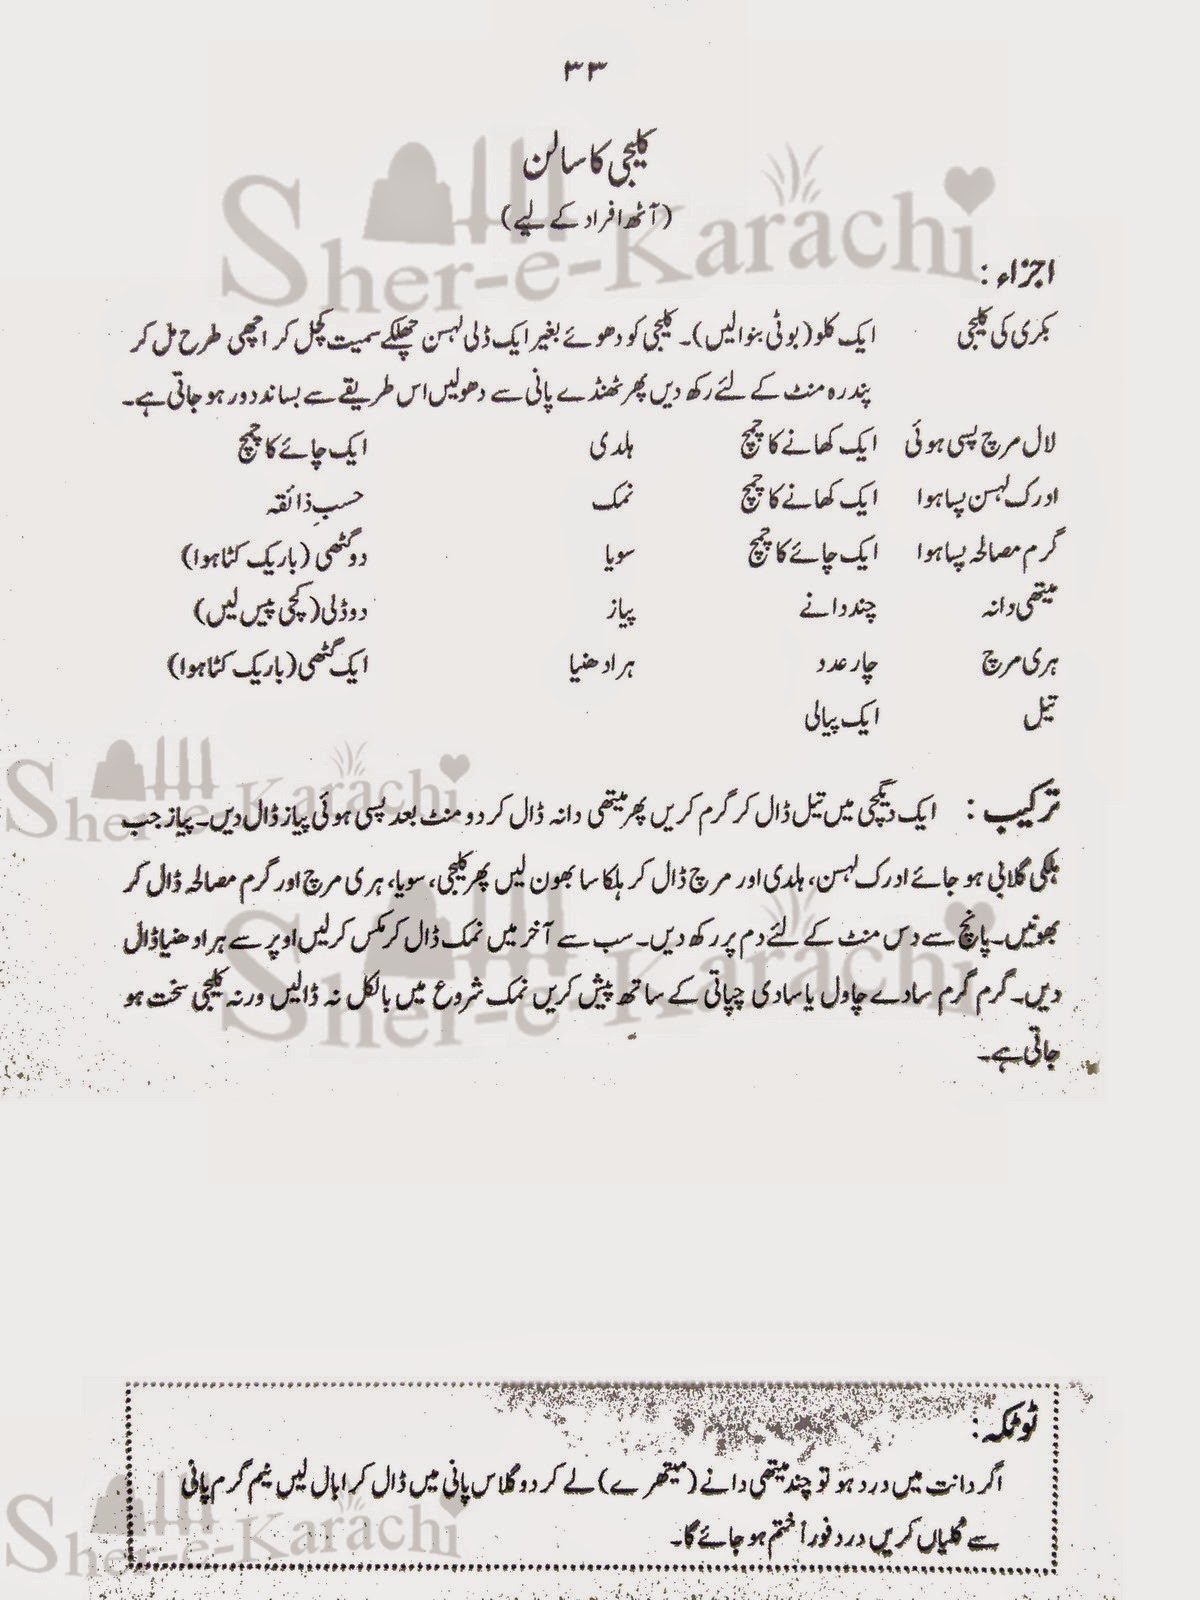 ۳۳
کلیجی کا سالن
(آٹھ افراد کے لیے)
اجزاء :
بکری کی کلیجی ایک کلو (بوٹی بنوالیں)۔ کلیجی کو دھوئے بغیر ایک ڈلی لہسن چھلکے سمیت کچل کر اچھی طرح مل کر
پندرہ منٹ کے لئے رکھ دیں پھر ٹھنڈے پانی سے دھولیں اس طریقے سے بساند دور ہو جاتی ہے۔
لال مرچ پسی ہوئی ایک کھانے کا چمچ ہلدی ایک چائے کا چمچ
ادرک لہسن پسا ہوا ایک کھانے کا چمچ نمک حسبِ ذائقہ
گرم مصالحہ پسا ہوا ایک چائے کا چمچ سویا دو گٹھی (باریک کٹا ہوا)
میتھی دانہ چند دانے پیاز دو ڈلی (کچی پیس لیں)
ہری مرچ چار عدد ہرا دھنیا ایک گٹھی (باریک کٹا ہوا)
تیل ایک پیالی
ترکیب : ایک دیگچی میں تیل ڈال کر گرم کریں پھر میتھی دانہ ڈال کر دو منٹ بعد پسی ہوئی پیاز ڈال دیں۔ پیاز جب
ہلکی گلابی ہو جائے ادرک لہسن، ہلدی اور مرچ ڈال کر ہلکا سا بھون لیں پھر کلیجی، سویا، ہری مرچ اور گرم مصالحہ ڈال کر
بھونیں۔ پانچ سے دس منٹ کے لئے دم پر رکھ دیں۔ سب سے آخر میں نمک ڈال کر مکس کرلیں اوپر سے ہرا دھنیا ڈال
دیں۔ گرم گرم سادے چاول یا سادی چپاتی کے ساتھ پیش کریں نمک شروع میں بالکل نہ ڈالیں ورنہ کلیجی سخت ہو
جاتی ہے۔
ٹوٹکہ :
اگر دانت میں درد ہو تو چند میتھی دانے (میتھرے) لے کر دو گلاس پانی میں ڈال کر ابال لیں نیم گرم پانی
سے کُلیاں کریں درد فوراً ختم ہو جائے گا۔
Sher-e-Karachi
Sher-e-Karachi
Sher-e-Karachi
Sher-e-Karachi